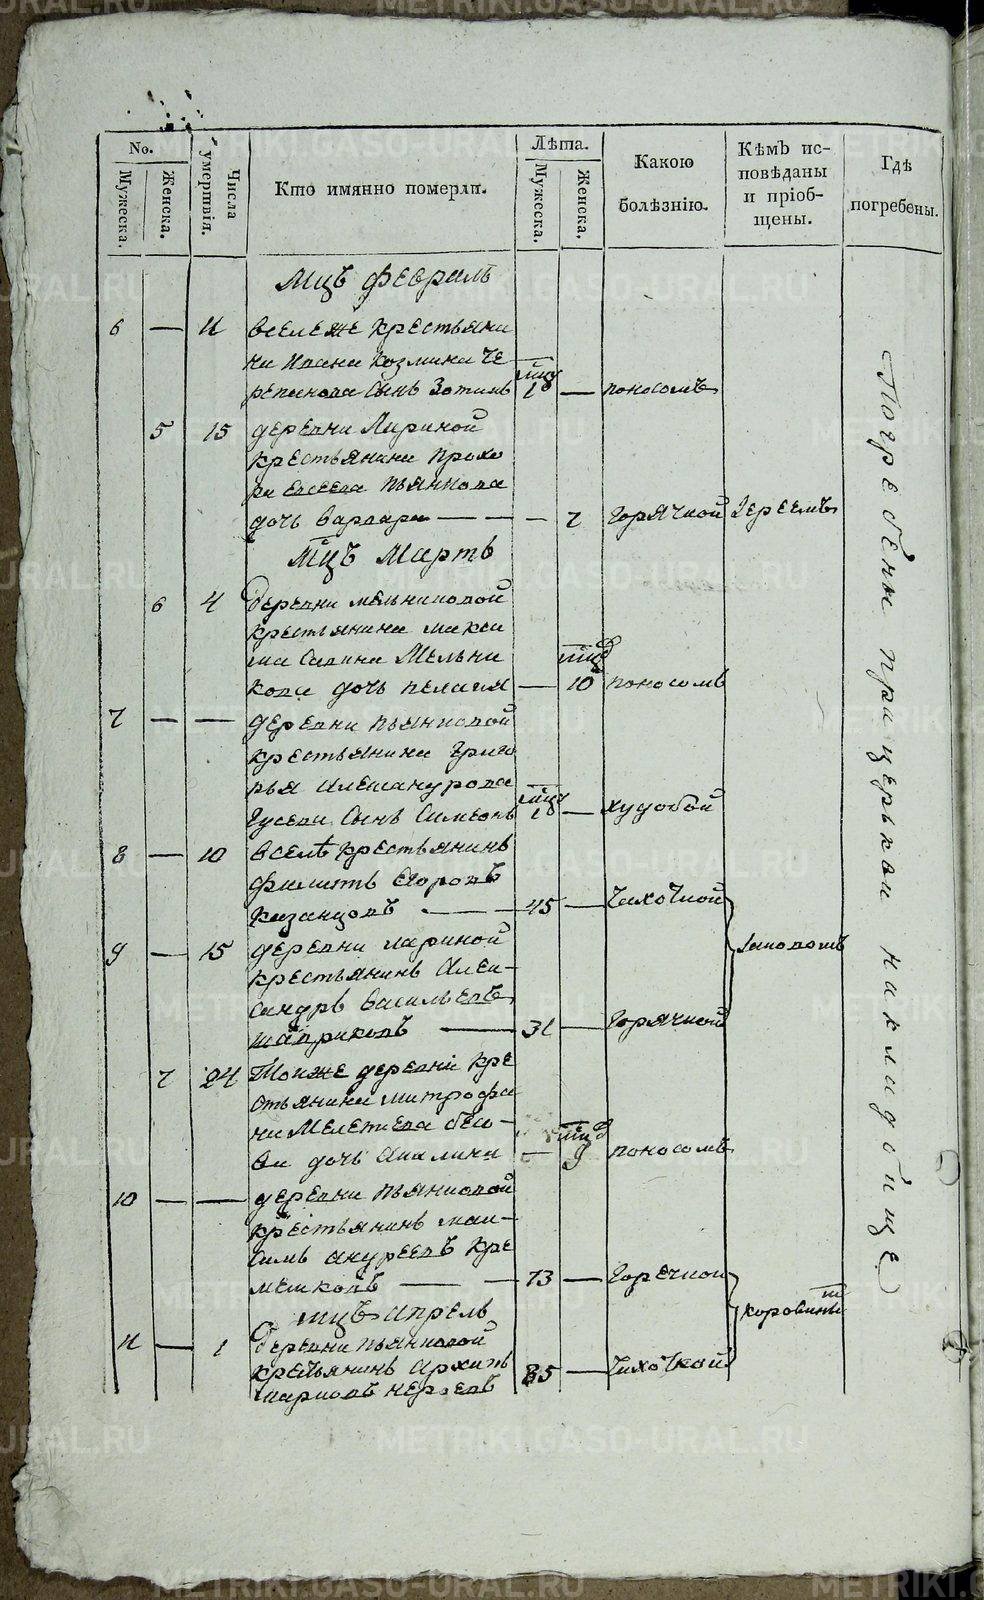 No.
Мужеска.
Женска.
Числа умертвія.
Кто имянно померли.
Лѣта.
Мужеска.
Женска.
Какою болѣзнію.
Кѣмъ исповѣданы и пріобщены.
Где погребены.
Мцъ февраль
6 — 11 всележе крестьяни
на Ивана Козмина Че
репанова сынъ Зотикъ мцъ 1 — поносомъ
5 15 деревни Лариной
крестьянина Прохо
ра Евсеева Пьянкова
дочь Варвара — — — 7 горячкой
Мцъ Мартъ
6 4 деревни Мельниковой
крестьянина Макси
ма Савина Мельни
кова дочь Пелагия — мцъ 10 поносомъ
7 — — деревни Пьянковой
крестьянина Григо
рья Александрова
Гусева сынъ Симеонъ мцъ 1 — худобой
8 — 10 вселѣ крестьянинъ
Филиппъ Егоровъ
Казанцовъ — 45 — чихоткой
9 — 15 деревни Лариной
крестьянинъ Алек-
сандръ Васильевъ
Шавриковъ — 31 — горячкой
7 24 тоиже деревни кре
стьянина Митрофа
на Мелетиева
дочь Акилина — мцъ 9 поносомъ
10 — — деревни Пьянковой
крестьянинъ Мак-
симъ Андреевъ Кре
мешковъ — 73 — горечкои
мцъ Апрель
11 — 1 деревни Пьянковой
крестьянинъ Архипъ
85 — чихоткой
Погребены при церькви на кладбище
METRIKI.GASO-URAL.RU